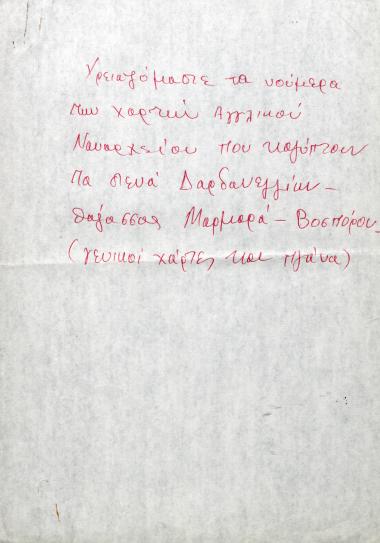 Χρειαζόμαστε τα νούμερα
των χαρτών Αγγλικού
Ναυαρχείου που καλύπτουν
Τα στενά Δαρδανελλίων -
θαλάσσας Μαρμαρά - Βοσπόρου -
(γενικοί χάρτες και πλάνα)